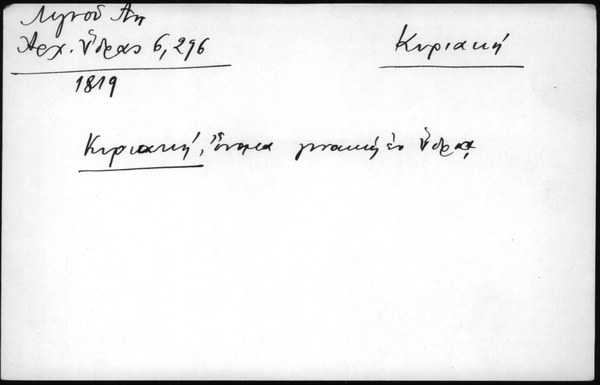 Λιγνοῦ Αντ
Ἀρχ. Ὕδρας 6, 296
1819
Κυριακή
Κυριακή, ὄνομα γυναικὸς ἐν Ὕδρᾳ